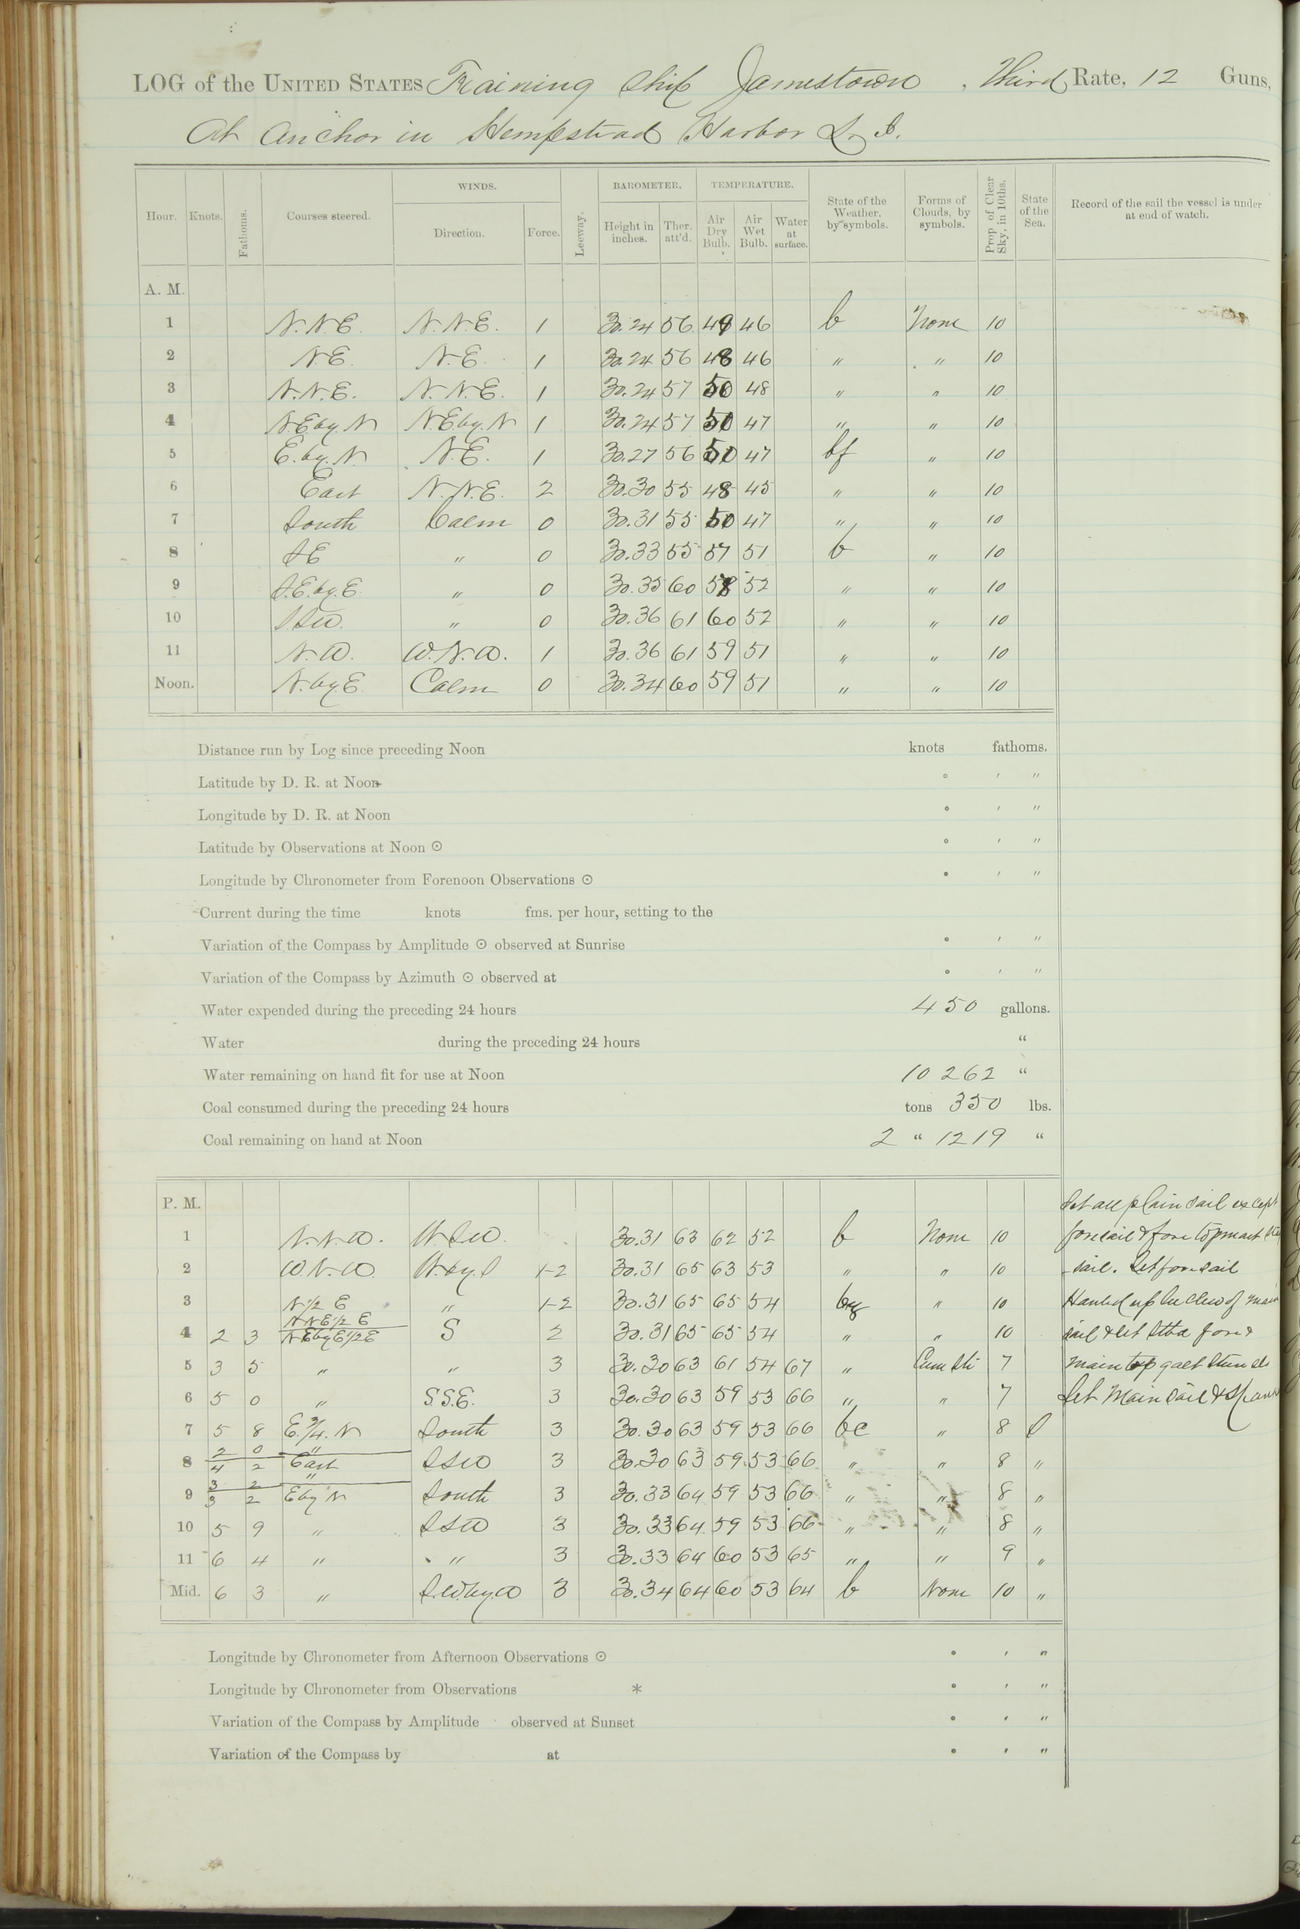 LOG of the UNITED STATES Training Ship Jamestown, Third Rate, 12 Guns,
At anchor in Hempstead Harbor L. I.
Hour. Knots. Fathoms. Courses steered. WINDS. Direction. Force. Leeway. BAROMETER. Height in inches. Ther. att'd. TEMPERATURE. Air Dry Bulb. Air Wet Bulb. Water at surface. State of the Weather, by symbols. Forms of Clouds, by symbols. Prop of Clear Sky, in 10ths. State of the Sea. Record of the sail the vessel is under at end of watch.
A. M.
1 N.N.E. N.N.E. 1 30.24 56 49 46 b None 10
2 N.E. N.E. 1 30.24 56 48 46 " " 10
3 N.N.E. N.N.E. 1 30.24 57 50 48 " " 10
4 N.E by. N N.E by. N 1 30.24 57 50 47 " " 10
5 E. by. N. N.E. 1 30.27 56 50 47 bf " 10
6 East N.N.E. 2 30.30 55 48 45 " " 10
7 South Calm 0 30.31 55 50 47 " " 10
8 S E " 0 30.33 55 57 51 b " 10
9 S.E. by. E. " 0 30.35 60 58 52 " " 10
10 SSW. " 0 30.36 61 60 52 " " 10
11 N.W. W.N.W. 1 30.36 61 59 51 " " 10
Noon. N. by E. Calm 0 30.34 60 59 51 " " 10
Distance run by Log since preceding Noon knots fathoms.
Latitude by D. R. at Noon ° ′ ″
Longitude by D. R. at Noon ° ′ ″
Latitude by Observations at Noon ⊙ ° ′ ″
Longitude by Chronometer from Forenoon Observations ⊙ ° ′ ″
Current during the time knots fms. per hour, setting to the
Variation of the Compass by Amplitude ⊙ observed at Sunrise ° ′ ″
Variation of the Compass by Azimuth ⊙ observed at ° ′ ″
Water expended during the preceding 24 hours 450 gallons.
Water during the preceding 24 hours "
Water remaining on hand fit for use at Noon 10 262 "
Coal consumed during the preceding 24 hours tons 350 lbs.
Coal remaining on hand at Noon 2 " 1219 "
P. M. Set all plain sail except
1 N.N.W. W.S.W. 30.31 63 62 52 b None 10 foresail & fore topmast
2 W.N.W. W. by. S 1-2 30.31 65 63 53 " " 10 sail. Set foresail
3 N 1/2 E " 1-2 30.31 65 65 54 " 10 Hauled up lee clew of main
N N E 1/2 E
4 2 3 N E by E 1/2 E S 2 30.31 65 65 54 " " 10 sail & set Stbd fore &
5 3 5 " " 3 30.30 63 61 54 67 " Cum Str 7 main top gall't
6 5 0 " S.S.E. 3 30.30 63 59 53 66 " " 7 Set Main sail &
7 5 8 E. 3/4. N South 3 30.30 63 59 53 66 bc " 8 S
2 0 "
8 4 2 East SSW 3 30.30 63 59 53 66 " " 8 "
3 2 "
9 3 2 E by N South 3 30.33 64 59 53 66 " " 8 "
10 5 9 " SSW 3 30.33 64 59 53 66 " " 8 "
11 6 4 " " 3 30.33 64 60 53 65 " " 9 "
Mid. 6 3 " S.W. by. W 3 30.34 64 60 53 64 b None 10 "
Longitude by Chronometer from Afternoon Observations ⊙ ° ′ ″
Longitude by Chronometer from Observations * ° ′ ″
Variation of the Compass by Amplitude observed at Sunset ° ′ ″
Variation of the Compass by at ° ′ ″